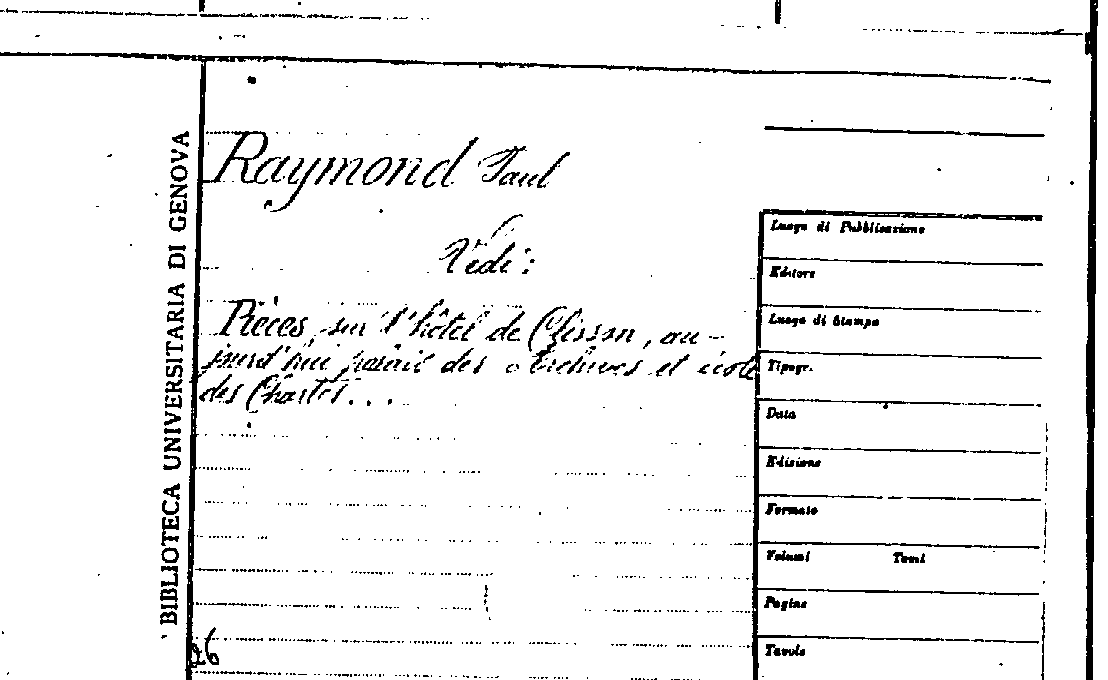 BIBLIOTECA UNIVERSITARIA DI GENOVA
Raymond Paul
Vedi:
Pièces sur l'hôtel de Clisson, au-
jourd'hui palais des Archives et école
des Chartes...
26
Luogo di Pubblicazione
Editore
Luogo di Stampa
Tipogr.
Data
Edizione
Formato
Volumi Tomi
Pagine
Tavole